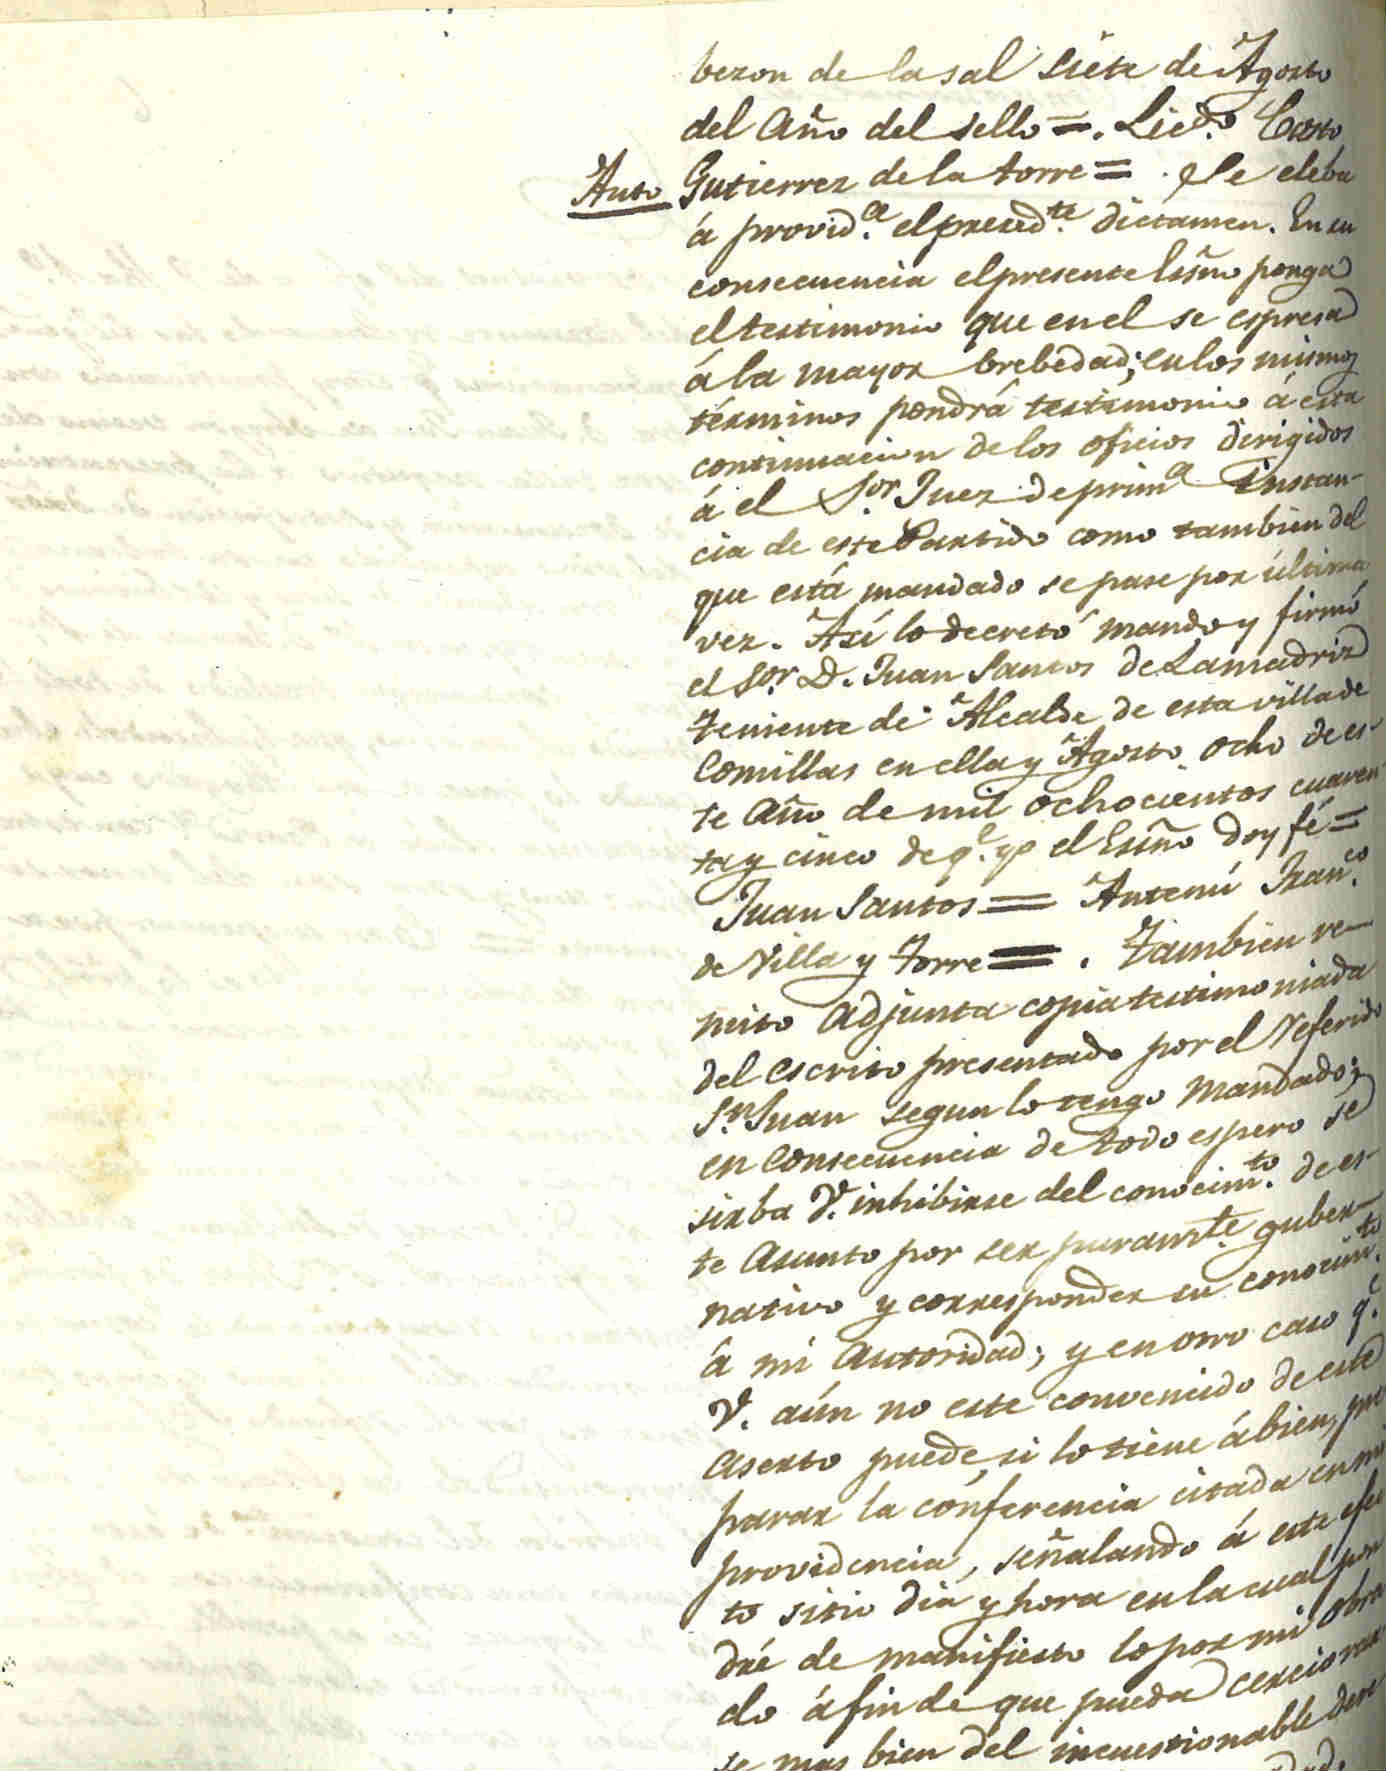 bezon de la sal siete de Agosto
del Año del sello =. Licdo. Casto
Auto Gutierrez de la torre = . Se eleba
á provid.ª el preced.te dictamen. En su
consecuencia el presente Essno ponga
el testimonio que en el se espresa
á la mayor brebedad; en los mismos
términos pondrá testimonio á esta
continuacion de los oficios dirigidos
á el Sor. Juez de prim.ª instan-
cia de este Partido como tambien del
que está mandado se pase por última
vez. Así lo decretó mando y firmó
el Sor. D. Juan Santos de Lamadrid
teniente de Alcalde de esta villa de
Comillas en ella y Agosto ocho de es-
te Año de mil ochocientos cuaren-
ta y cinco de q.e yo el Essno doy fé =
Juan Santos = Antemí Fran.co
de Villa y Torre = . Tambien re-
mito adjunta copia testimoniada
del escrito presentado por el referido
Sn. Juan segun lo tengo mandado;
en consecuencia de todo espero se
sirba V. inhibirse del conocim.to de es-
te asunto por ser puram.te guber-
nativo y corresponder su conocim.to
á mi autoridad; y en otro caso q.e
V. aún no este convencido de este
aserto puede, si lo tiene á bien, pre
parar la conferencia citada en mi
providencia, señalando á este efec
to sitio dia y hora en la cual pon
dré de manifiesto lo por mi obra
do á fin de que pueda cerciorar
se mas bien del incuestionable dere